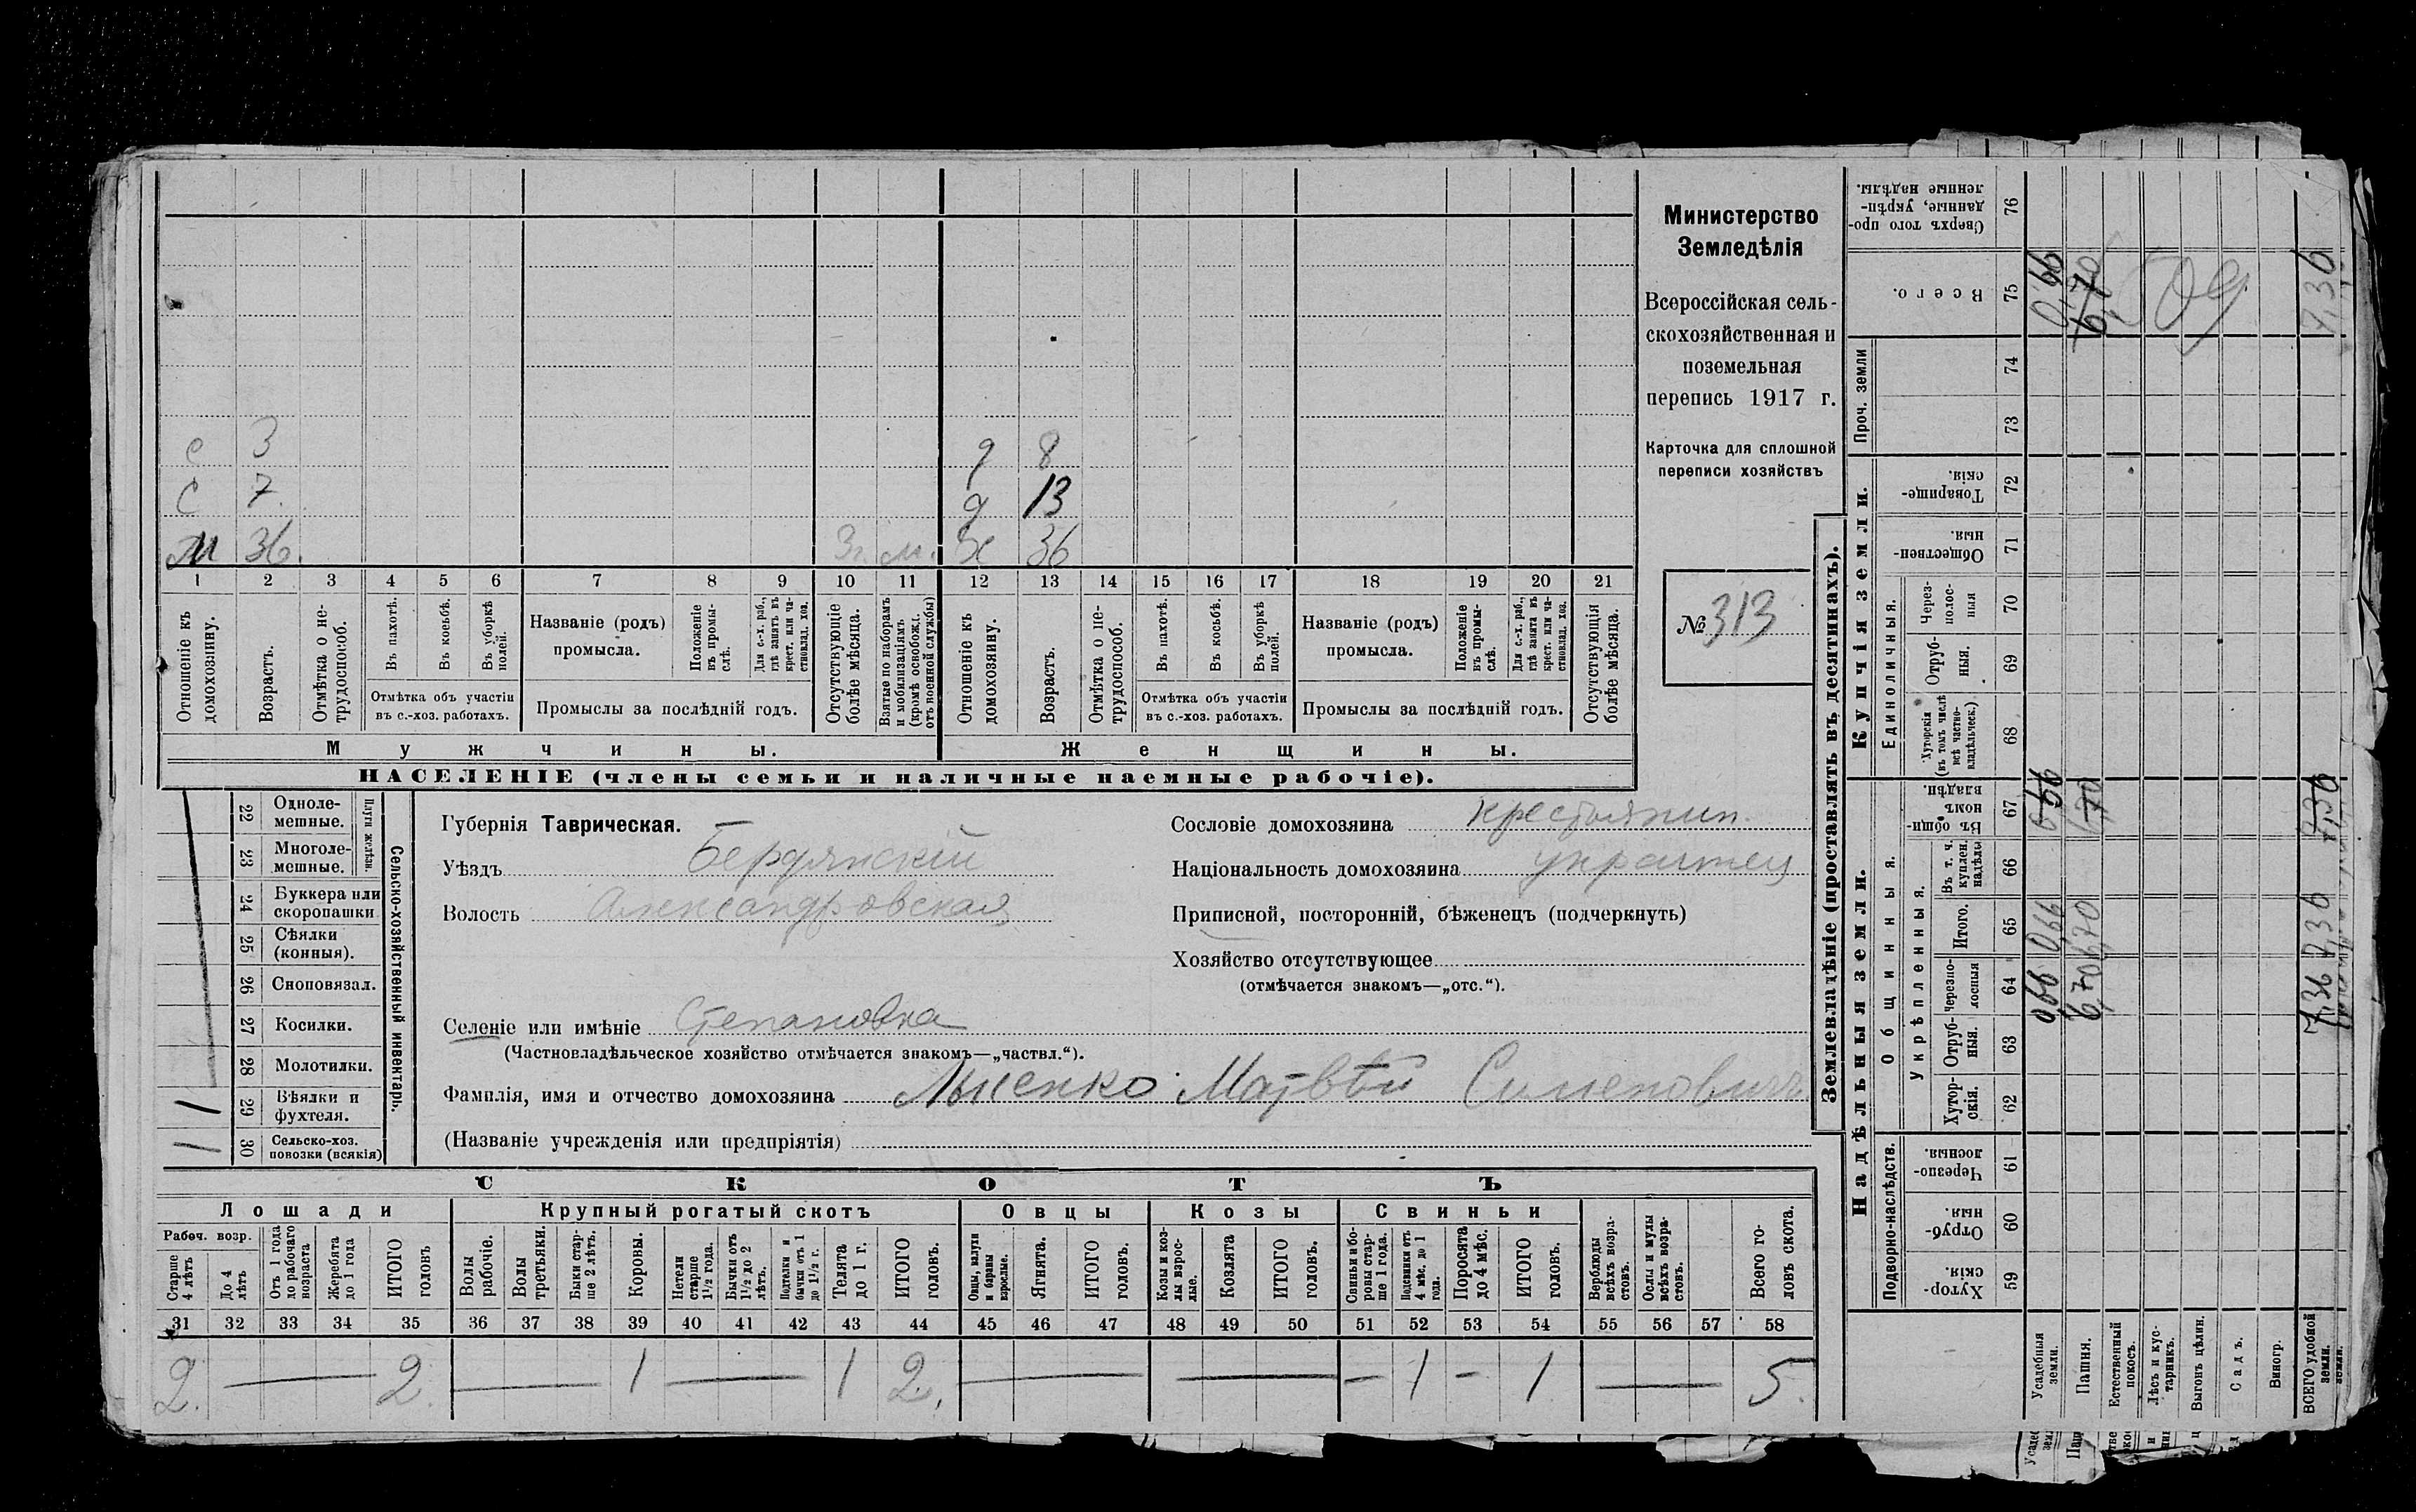 Министерство
Земледѣлія
Всероссійская сель-
скохозяйственная и
поземельная
перепись 1917 г.
Карточка для сплошной
переписи хозяйствъ
№ 313
с 3 д 8
с 7. д 13
М 36. 3г. м. Ж 36
1 2 3 4 5 6 7 8 9 10 11 12 13 14 15 16 17 18 19 20 21
Отношеніе къ домохозяину.
Возрастъ.
Отмѣтка о не-трудоспособ.
Въ пахотѣ.
Въ косьбѣ.
Въ уборкѣ полей.
Отмѣтка объ участіи
въ с.-хоз. работахъ.
Названіе (родъ)
промысла.
Положеніе въ промы-слѣ.
Для с.-х. раб., гдѣ занятъ въ крест. или ча-стновлад. хоз.
Промыслы за послѣдній годъ.
Отсутствующіе болѣе мѣсяца.
Взятые по наборамъ и мобилизаціямъ (кромѣ освобожд. отъ военной службы)
Отношеніе къ домохозяину.
Возрастъ.
Отмѣтка о не-трудоспособ.
Въ пахотѣ.
Въ косьбѣ.
Въ уборкѣ полей.
Отмѣтка объ участіи
въ с.-хоз. работахъ.
Названіе (родъ)
промысла.
Положеніе въ промы-слѣ.
Для с.-х. раб., гдѣ занята въ крест. или ча-стновлад. хоз.
Промыслы за послѣдній годъ.
Отсутствующія болѣе мѣсяца.
Мужчины. Женщины.
НАСЕЛЕНІЕ (члены семьи и наличные наемные рабочіе).
Сельско-хозяйственный инвентарь.
Плуги желѣзн.
22 Одноле-
мешные.
23 Многоле-
мешные.
24 Буккера или
скоропашки
25 Сѣялки
(конныя).
26 Сноповязал.
27 Косилки.
28 Молотилки.
1 29 Вѣялки и
фухтеля.
1 1 30 Сельско-хоз.
повозки (всякія)
Губернія Таврическая.
Уѣздъ Бердянскій
Волость Александровская
Сословіе домохозяина крестьянин.
Національность домохозяина украинец
Приписной, посторонній, бѣженецъ (подчеркнуть)
Хозяйство отсутствующее
(отмѣчается знакомъ—„отс.“).
Селеніе или имѣніе Степановка
(Частновладѣльческое хозяйство отмѣчается знакомъ—„частвл.“).
Фамилія, имя и отчество домохозяина Лысенко Матвѣй Сименович
(Названіе учрежденія или предпріятія)
СКОТЪ
Лошади Крупный рогатый скотъ Овцы Козы Свиньи
Рабоч. возр.
Старше 4 лѣтъ
До 4 лѣтъ
Отъ 1 года до рабочаго возраста
Жеребята до 1 года
ИТОГО головъ
Волы рабочіе.
Волы третьяки.
Быки стар-ше 2 лѣтъ.
Коровы.
Нетели старше 1½ года.
Бычки отъ 1½ до 2 лѣтъ.
Подтелки и бычки отъ 1 до 1½ г.
Телята до 1 г.
ИТОГО головъ.
Овцы, валухи и бараны взрослые.
Ягнята.
ИТОГО головъ.
Козы и коз-лы взрос-лые.
Козлята
ИТОГО головъ.
Свиньи и бо-ровы стар-ше 1 года.
Подсвинки отъ 4 мѣс. до 1 года.
Поросята до 4 мѣс.
ИТОГО головъ.
Верблюды всѣхъ возра-стовъ.
Ослы и мулы всѣхъ возра-стовъ.
Всего го-ловъ скота.
31 32 33 34 35 36 37 38 39 40 41 42 43 44 45 46 47 48 49 50 51 52 53 54 55 56 57 58
2. — 2 — 1 — 1 2. — — — 1 — 1 — 5.
Землевладѣніе (проставлять въ десятинахъ).
Надѣльныя земли. Купчія земли. Проч. земли
Подворно-наслѣдств.
Общинныя.
Укрѣпленныя.
Единоличныя.
Сверхъ того про-данные, укрѣп-ленные надѣлы. 76
Всего. 75 0,66 6,70 7,36
74
73
Товарище-скія. 72
Обществен-ныя. 71
Через-полос-ныя 70
Отруб-ныя. 69
Хуторскія (въ томъ числѣ всѣ частно-владѣльческ.) 68
Въ общин-номъ владѣн. 67 0,66 6,70 7,36
Въ т. ч. куплен. надѣлы 66
Итого. 65 0,66 6,70 7,36
Черезпо-лосныя 64 0,66 6,70 7,36
Отруб-ныя. 63
Хутор-скія. 62
Черезпо-лосныя. 61
Отруб-ныя. 60
Хутор-скія. 59
Усадебныя земли.
Пашня.
Естественный покосъ.
Лѣсъ и кус-тарникъ.
Выгонъ цѣлин.
Садъ.
Виногр.
ВСЕГО удобной земли.